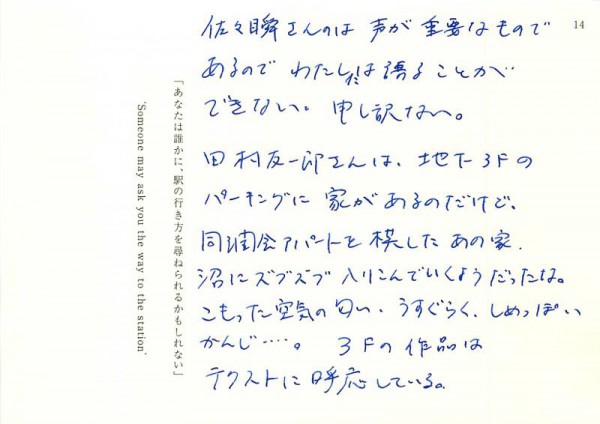 14
佐々瞬さんのは 声が重要なもので
あるので わたしには語ることが
できない。 申し訳ない。
田村友一郎さんは、地下3Fの
パーキングに 家があるのだけど、
同潤会アパートを模したあの家、
沼にズブズブ入りこんでいくようだったな。
こもった空気の匂い、うすぐらく、しめっぽい
かんじ……。 3Fの作品は
テクストに呼応している。
「あなたは誰かに、駅の行き方を尋ねられるかもしれない」
'Someone may ask you the way to the station'